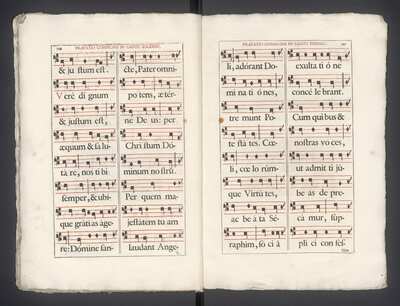 PRÆFATIO COMMUNIS IN CANTU SOLEMNI.
& ju stum est.
Verè di gnum
& justum est,
æquum & salu-
tà re, nos tibi
semper, & ubi-
que grátias age-
re: Dómine san-
cte, Pater omni-
po tens, æ tér-
ne De us: per
Chri stum Dó-
minum nostrũ.
Per quem ma-
jestátem tu am
laudant Ange-
li, adórant Do-
mi na ti ó nes,
tre munt Po-
te stá tes. Cœ-
li, cœ lo rúm-
que Virtú tes,
ac be á ta Sé-
raphim, só ci â
exulta ti ó ne
concé le brant.
Cum qui bus &
nostras vo ces,
ut admit ti ju-
be ás de pre-
cá mur, súp-
pli ci con fes-